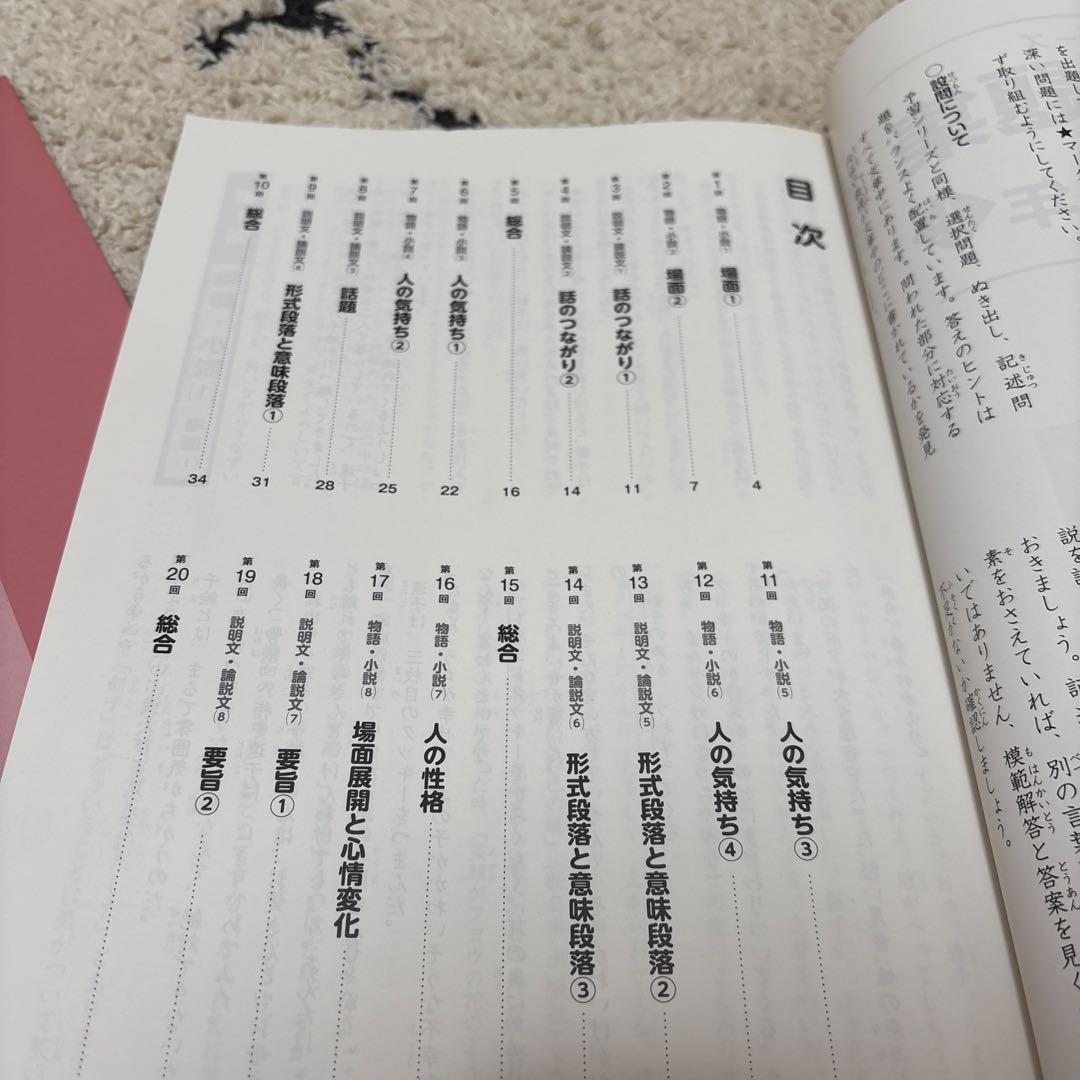 を出題し
深い問題には★マーク
ず取り組むようにしてください。
○設問について
予習シリーズと同様、選択問題、ぬき出し、記述問
題をバランスよく配置しています。答えのヒントは
すべて文章中にあります。問われた部分に対応する
おきましょう。
素をおさえていれば、別の言葉
いではありません、模範解答と答案を見く
不足がないか確認しましょう。
目次
第1回 物語・小説① 場面① 4
第2回 物語・小説② 場面② 7
第3回 説明文・論説文① 話のつながり① 11
第4回 説明文・論説文② 話のつながり② 14
第5回 総合 16
第6回 物語・小説③ 人の気持ち① 22
第7回 物語・小説④ 人の気持ち② 25
第8回 説明文・論説文③ 話題 28
第9回 説明文・論説文④ 形式段落と意味段落① 31
第10回 総合 34
第11回 物語・小説⑤ 人の気持ち③
第12回 物語・小説⑥ 人の気持ち④
第13回 説明文・論説文⑤ 形式段落と意味段落②
第14回 説明文・論説文⑥ 形式段落と意味段落③
第15回 総合
第16回 物語・小説⑦ 人の性格
第17回 物語・小説⑧ 場面展開と心情変化
第18回 説明文・論説文⑦ 要旨①
第19回 説明文・論説文⑧ 要旨②
第20回 総合